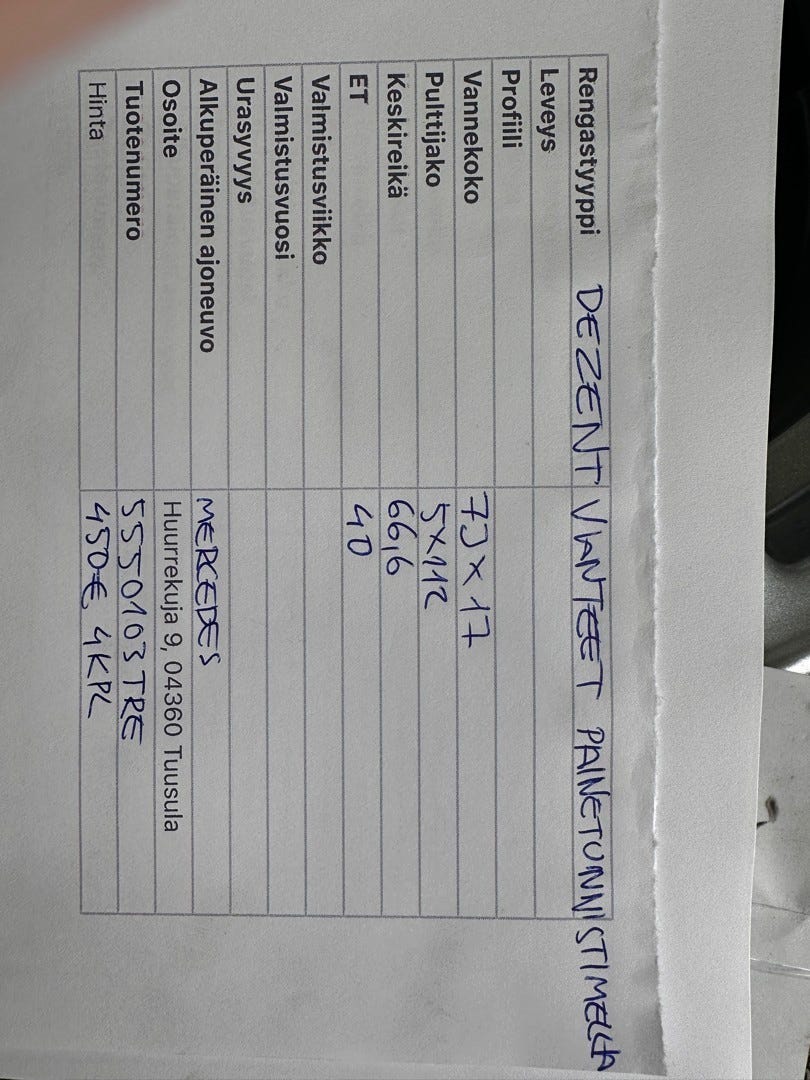 Rengastyyppi DEZENT VANTEET PAINETUNNISTIMELLA
Leveys
Profiili
Vannekoko 7J x 17
Pulttijako 5x112
Keskireikä 66,6
ET 40
Valmistusviikko
Valmistusvuosi
Urasyvyys
Alkuperäinen ajoneuvo MERCEDES
Osoite Huurrekuja 9, 04360 Tuusula
Tuotenumero 5550103TRE
Hinta 450€ 4KPL